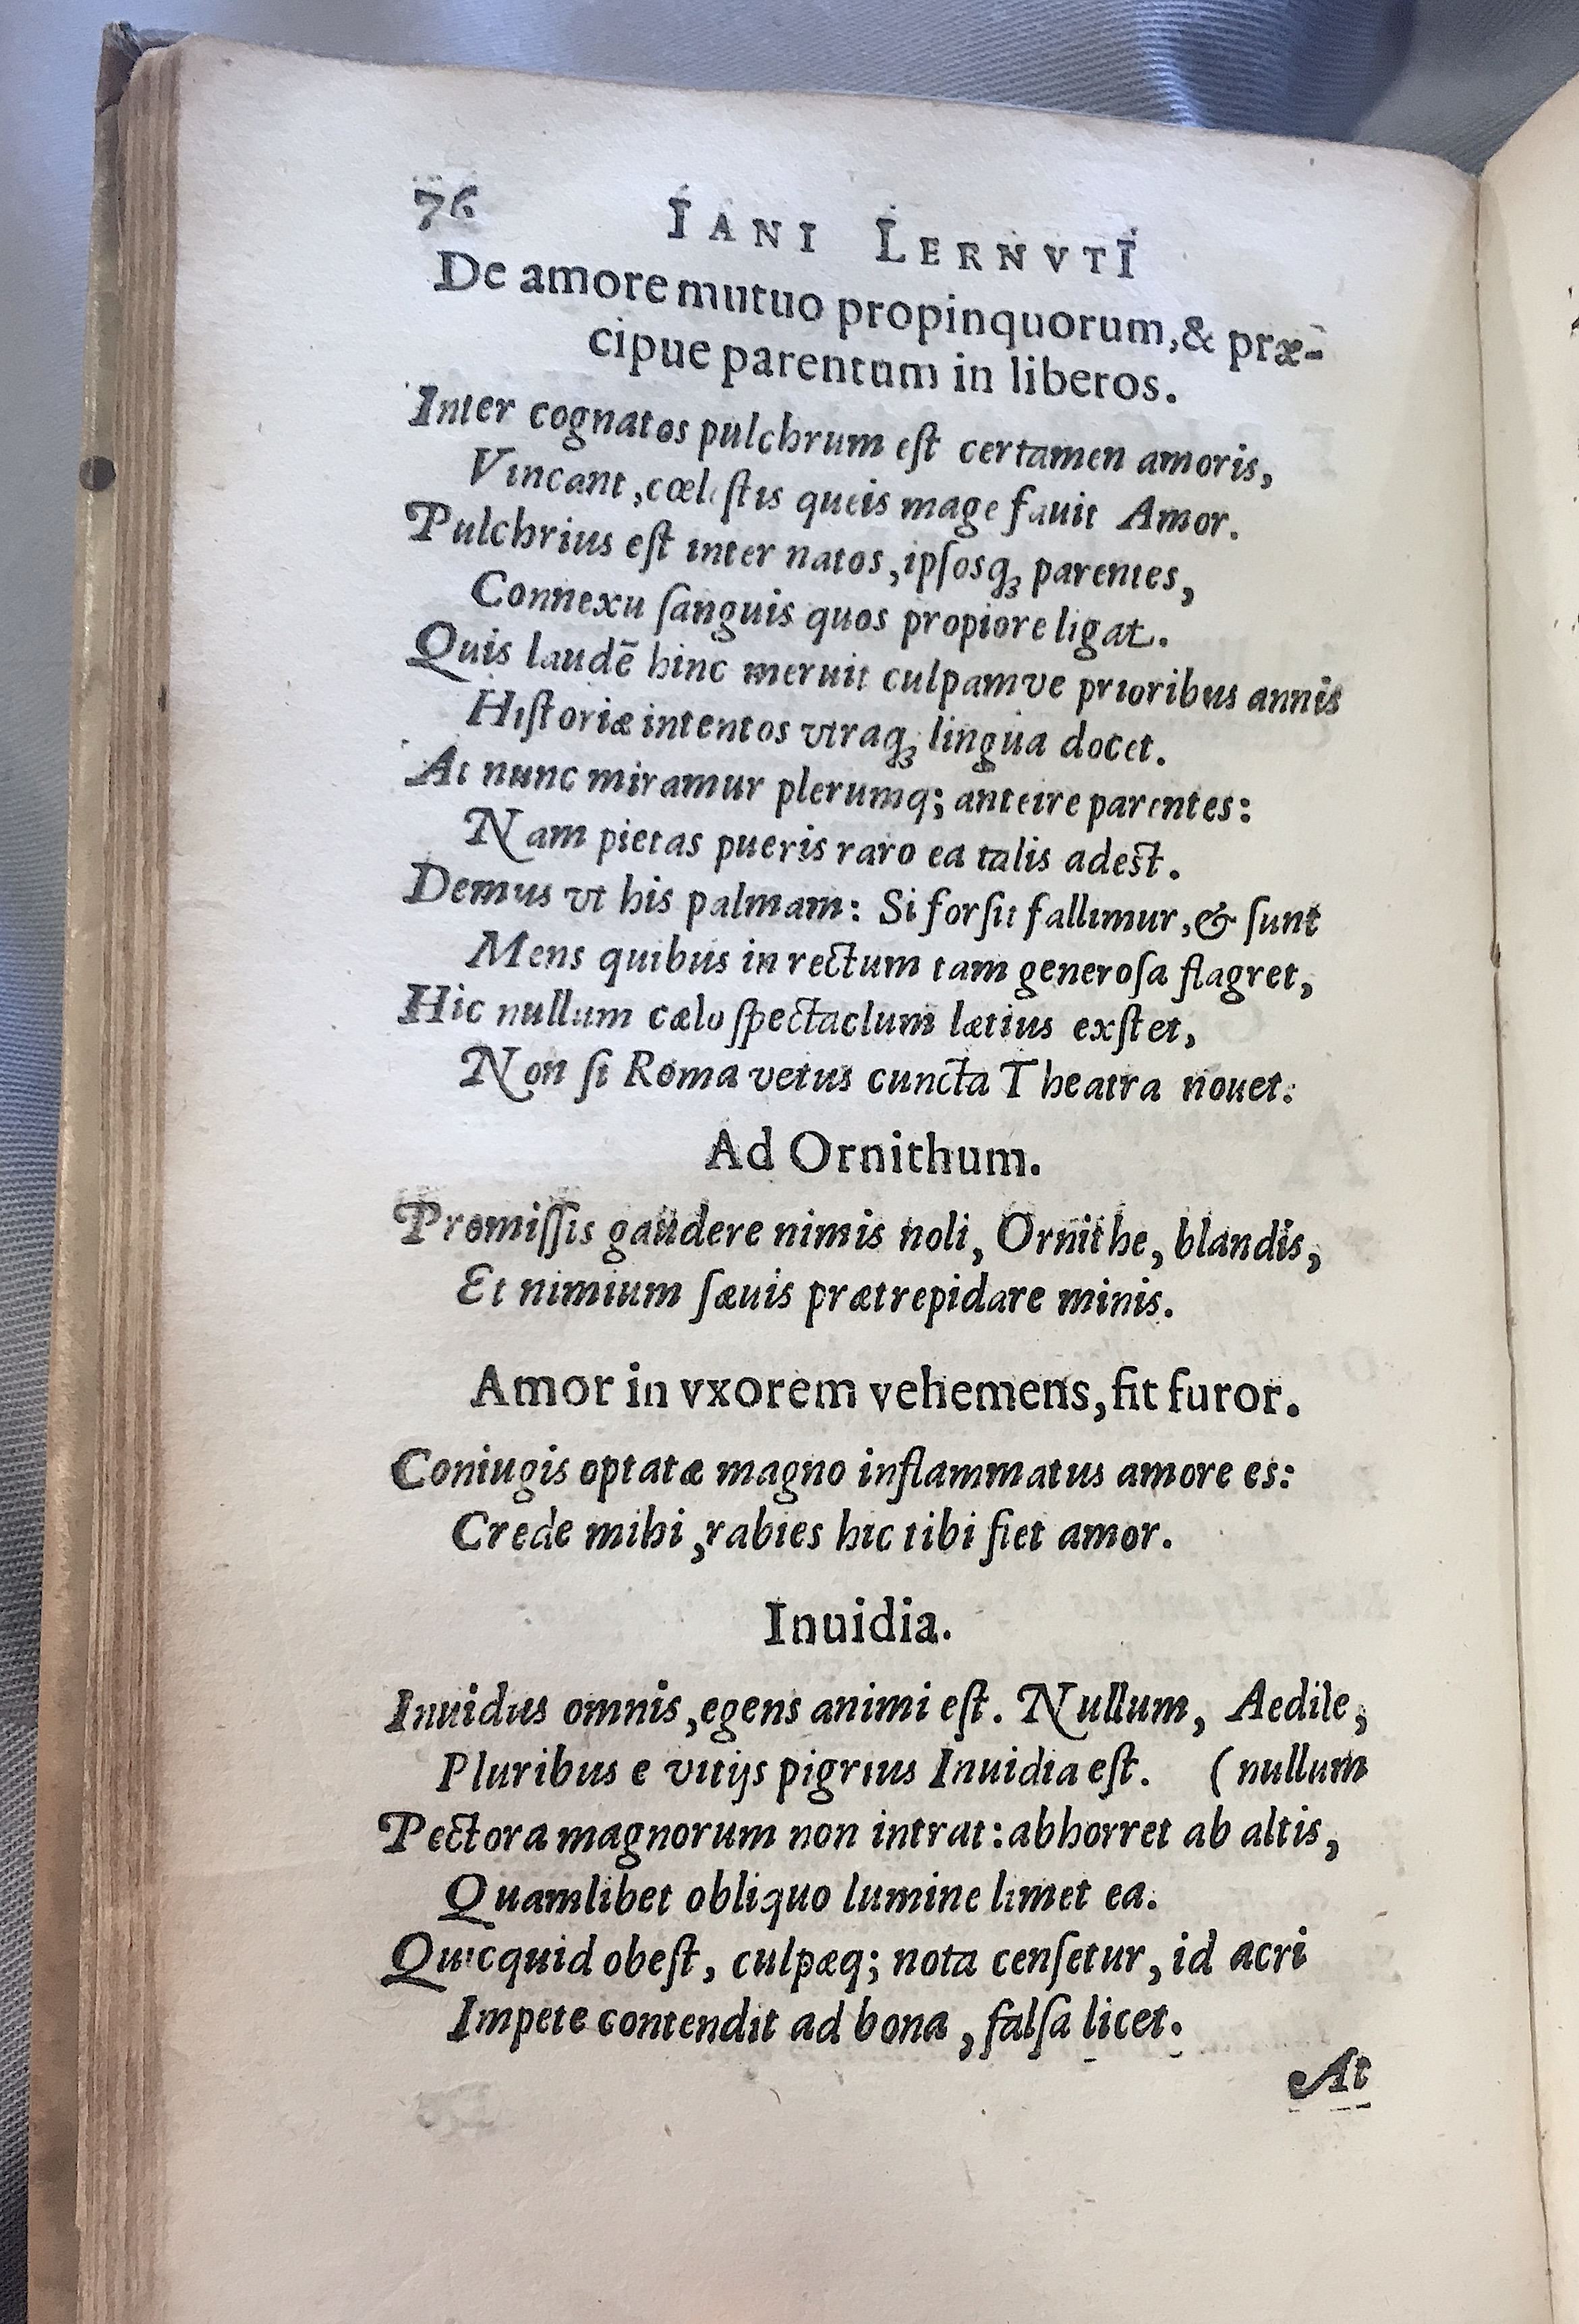 76 IANI LERNVTI
De amore mutuo propinquorum, & præ-
cipue parentum in liberos.
Inter cognatos pulchrum eſt certamen amoris,
Vincant, cœleſtis queis mage fauit Amor.
Pulchrius eſt inter natos, ipſosq́ꝫ parentes,
Connexu ſanguis quos propiore ligat.
Quis laudē hinc meruit culpamve prioribus annis
Hiſtoriæ intentos vtraqꝫ lingua docet.
At nunc miramur plerumq; anteire parentes:
Nam pietas pueris raro ea talis adeſt.
Demus vt his palmam: Si forſit fallimur, & ſunt
Mens quibus in rectum tam generoſa flagret,
Hic nullum cælo ſpectaclum lætius exſtet,
Non ſi Roma vetus cuncta Theatra nouet:
Ad Ornithum.
Promiſſis gaudere nimis noli, Ornithe, blandis,
Et nimium ſæuis prætrepidare minis.
Amor in vxorem vehemens, fit furor.
Coniugis optatæ magno inflammatus amore es:
Crede mihi, rabies hic tibi fiet amor.
Inuidia.
Inuidus omnis, egens animi eſt. Nullum, Aedile,
Pluribus e vitijs pigrius Inuidia eſt. (nullum
Pectora magnorum non intrat: abhorret ab altis,
Quamlibet obliquo lumine limet ea.
Quicquid obeſt, culpæq; nota cenſetur, id acri
Impete contendit ad bona, falſa licet.
At